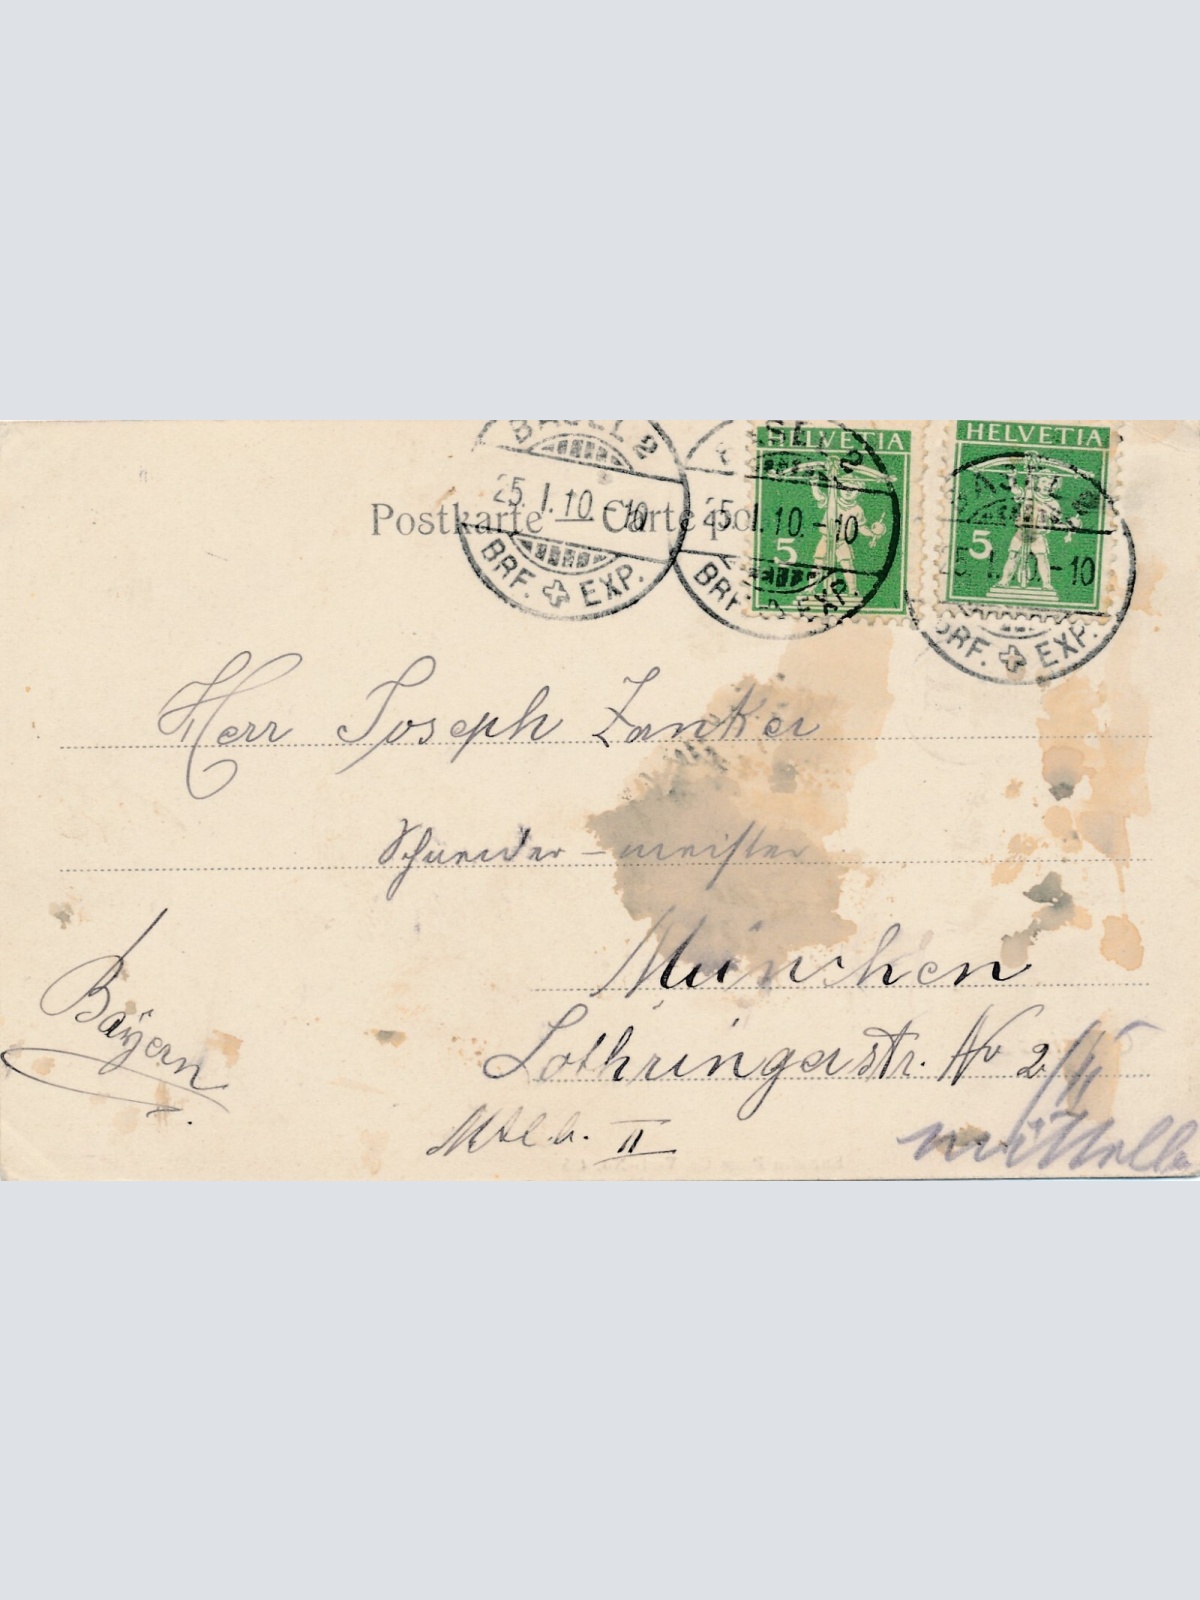 BASEL 2
25.I.10.-10
BRF. EXP.
BASEL 2
25.I.10.-10
BRF. EXP.
HELVETIA
5
BASEL 2
25.I.10.-10
BRF. EXP.
HELVETIA
5
Postkarte Carte
Herr Joseph Zanker
Schneider-meister
München
Bayern
Lothringerstr. No 2/II
II